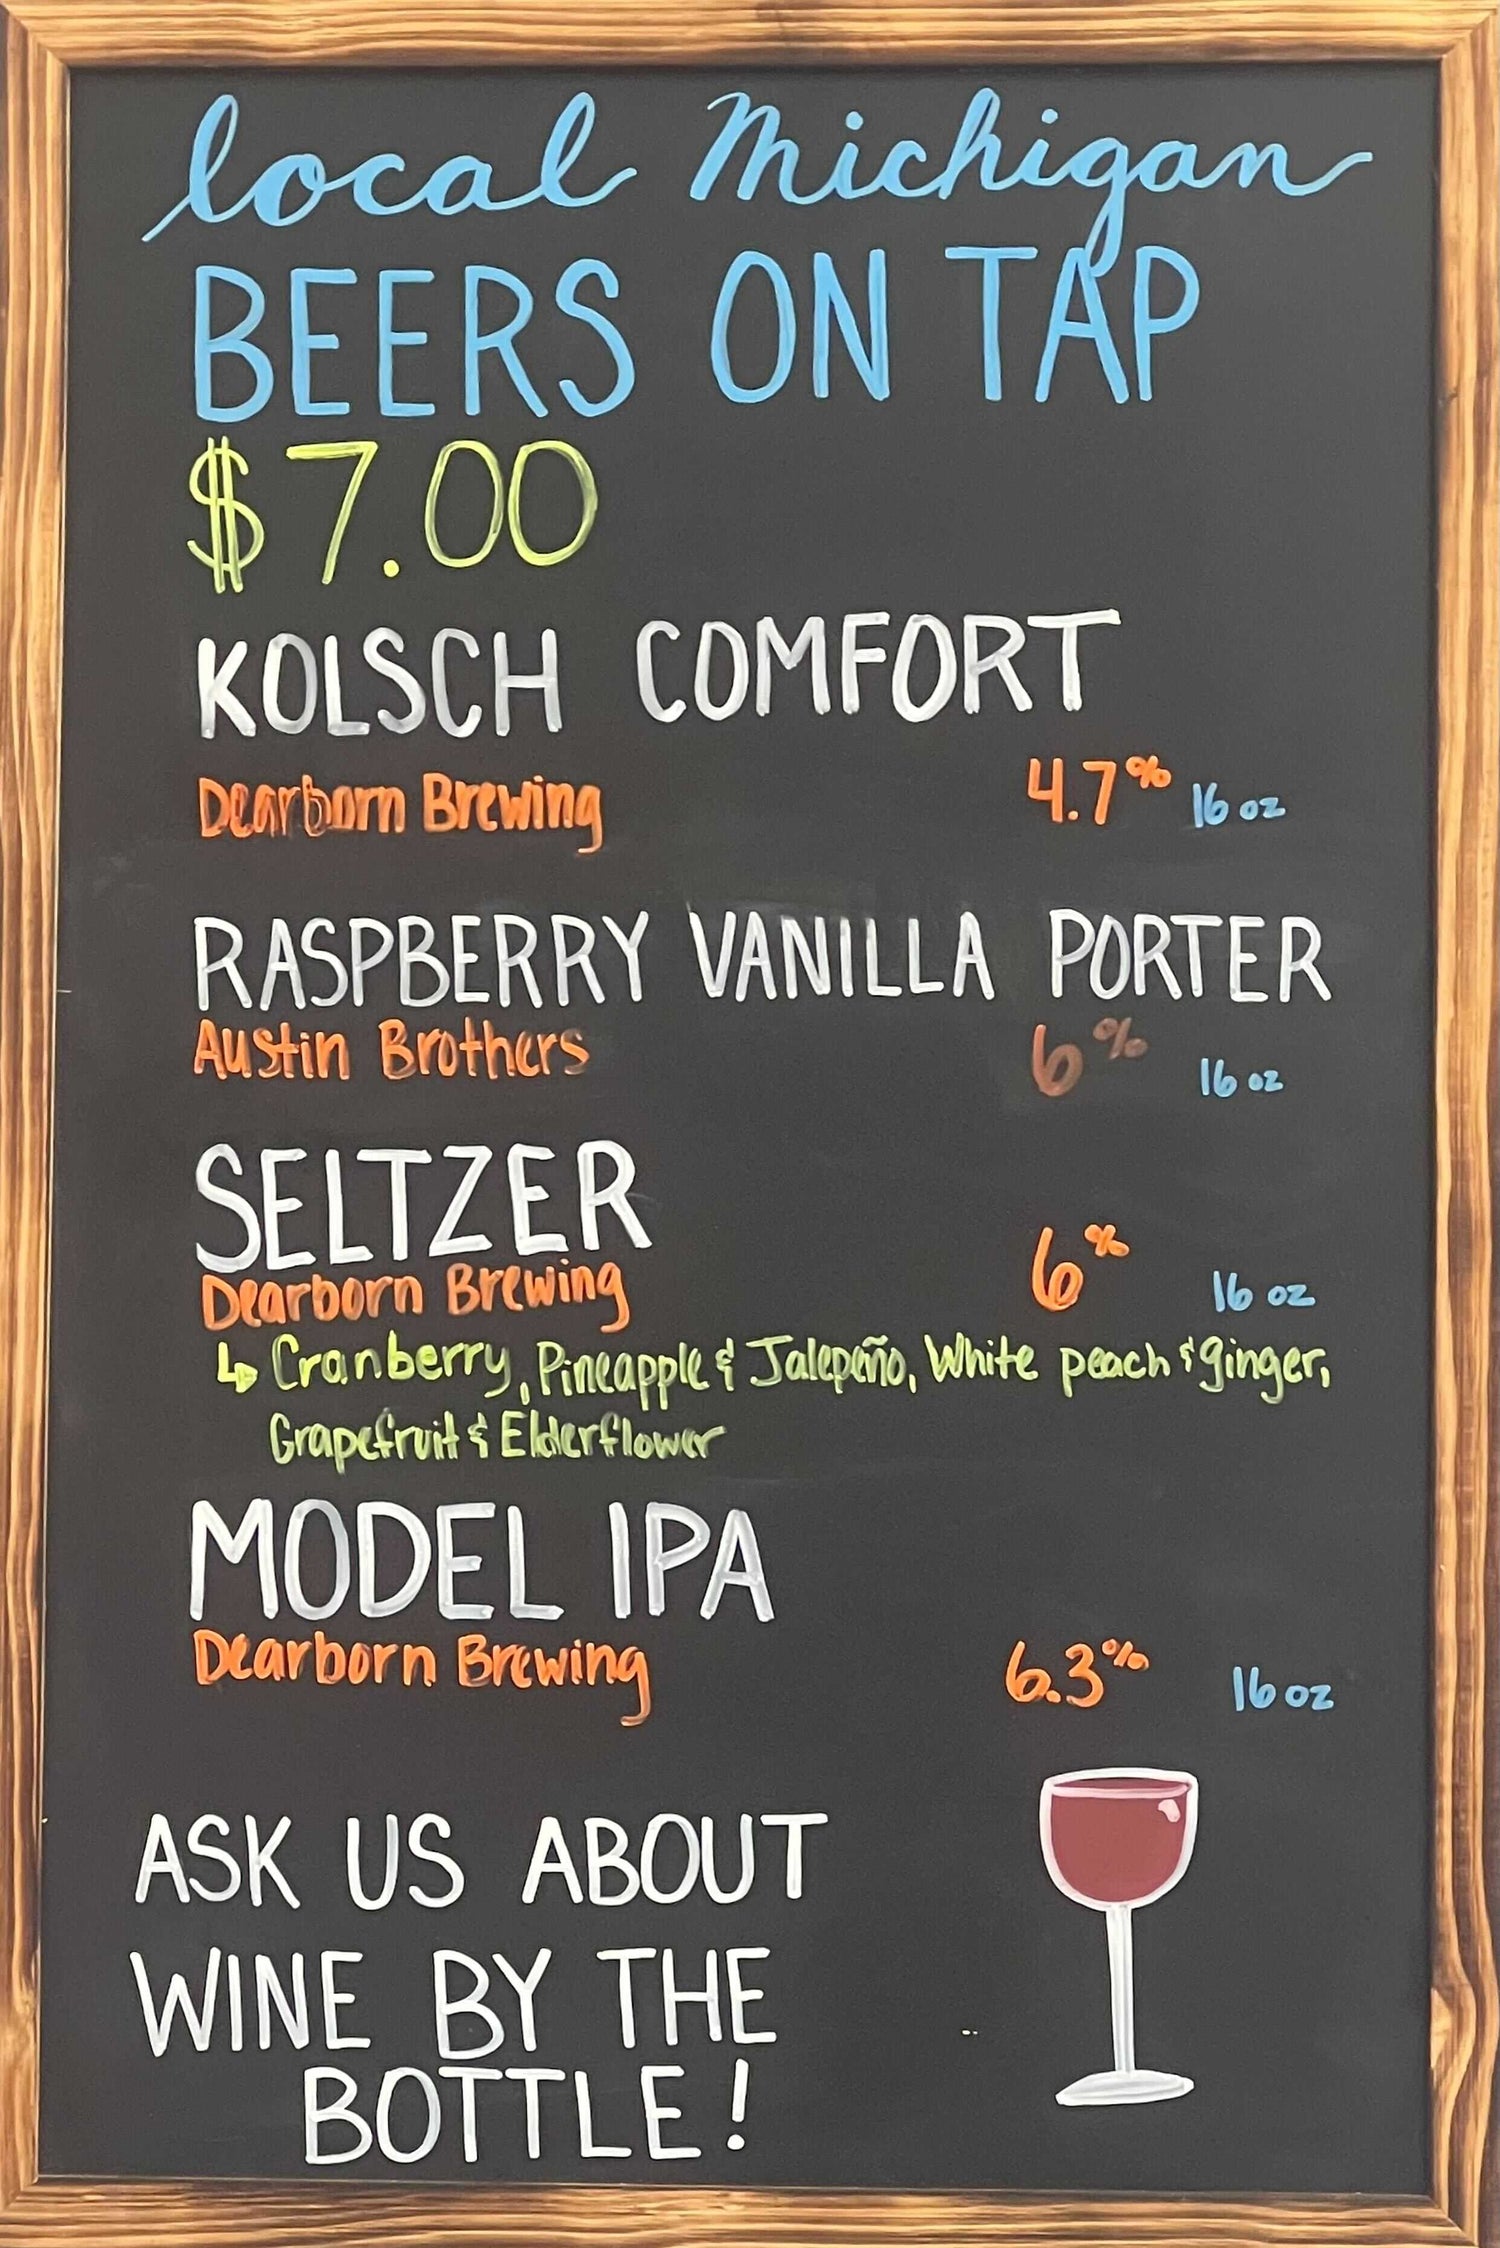 local Michigan
BEERS ON TAP
$7.00
KOLSCH COMFORT
Dearborn Brewing 4.7% 16 oz
RASPBERRY VANILLA PORTER
Austin Brothers 6% 16 oz
SELTZER
Dearborn Brewing 6% 16 oz
↳ Cranberry, Pineapple & Jalepeño, White peach & ginger,
Grapefruit & Elderflower
MODEL IPA
Dearborn Brewing 6.3% 16 oz
ASK US ABOUT
WINE BY THE
BOTTLE!